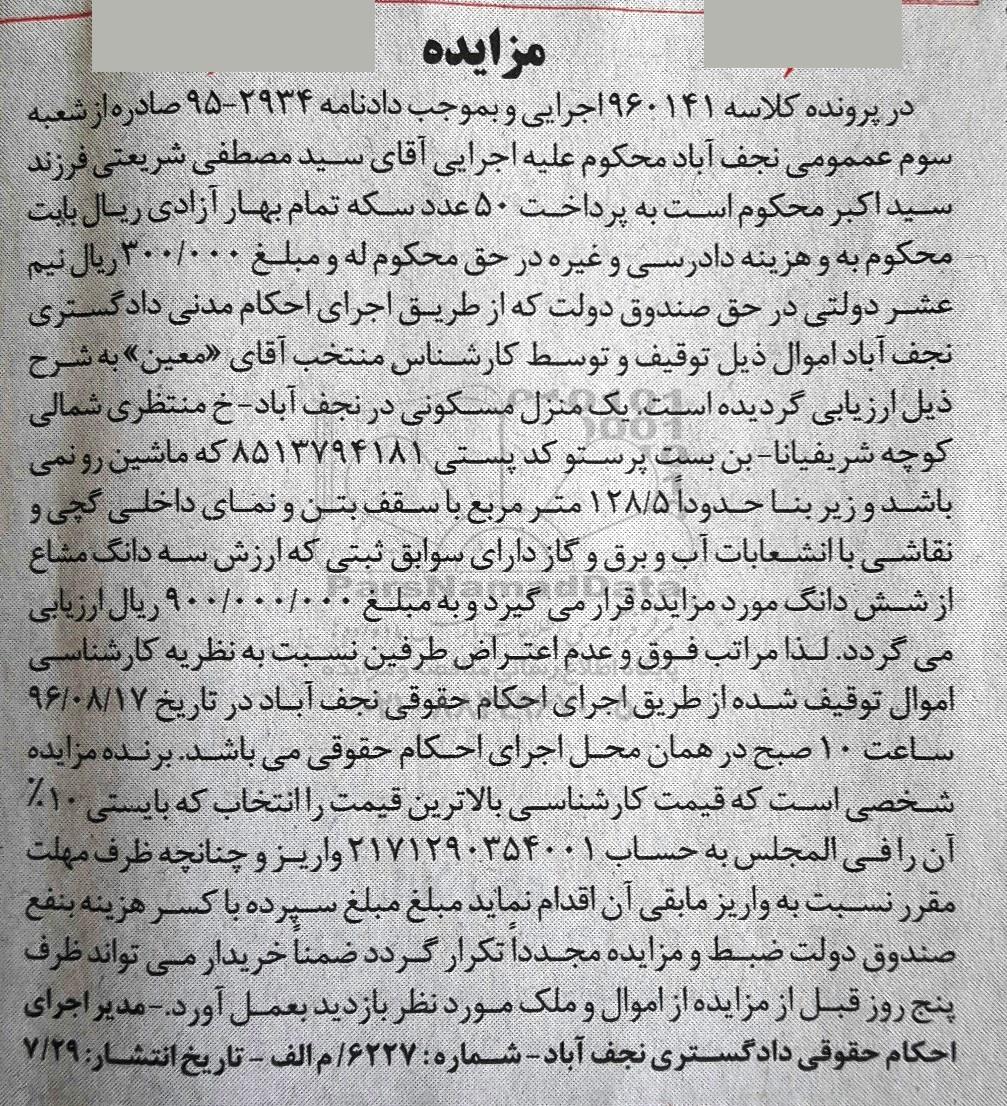 مزایده
در پرونده کلاسه ۹۶۰۱۴۱ اجرایی و بموجب دادنامه ۲۹۳۴-۹۵ صادره از شعبه
سوم عممومی نجف آباد محکوم علیه اجرایی آقای سید مصطفی شریعتی فرزند
سید اکبر محکوم است به پرداخت ۵۰ عدد سکه تمام بهار آزادی ریال بابت
محکوم به و هزینه دادرسی و غیره در حق محکوم له و مبلغ ۳۰۰/۰۰۰ ریال نیم
عشر دولتی در حق صندوق دولت که از طریق اجرای احکام مدنی دادگستری
نجف آباد اموال ذیل توقیف و توسط کارشناس منتخب آقای «معین» به شرح
ذیل ارزیابی گردیده است. یک منزل مسکونی در نجف آباد-خ منتظری شمالی
کوچه شریفیانا- بن بست پرستو کد پستی ۸۵۱۳۷۹۴۱۸۱ که ماشین رو نمی
باشد و زیر بنا حدوداً ۱۲۸/۵ متر مربع با سقف بتن و نمای داخلی گچی و
نقاشی با انشعابات آب و برق و گاز دارای سوابق ثبتی که ارزش سه دانگ مشاع
از شش دانگ مورد مزایده قرار می گیرد و به مبلغ ۹۰۰/۰۰۰/۰۰۰ ریال ارزیابی
می گردد. لذا مراتب فوق و عدم اعتراض طرفین نسبت به نظریه کارشناسی
اموال توقیف شده از طریق اجرای احکام حقوقی نجف آباد در تاریخ ۹۶/۰۸/۱۷
ساعت ۱۰ صبح در همان محل اجرای احکام حقوقی می باشد. برنده مزایده
شخصی است که قیمت کارشناسی بالاترین قیمت را انتخاب که بایستی ۱۰٪
آن را فی المجلس به حساب ۲۱۷۱۲۹۰۳۵۴۰۰۱ واریز و چنانچه ظرف مهلت
مقرر نسبت به واریز مابقی آن اقدام نماید مبلغ مبلغ سپرده با کسر هزینه بنفع
صندوق دولت ضبط و مزایده مجدداً تکرار گردد ضمناً خریدار می تواند ظرف
پنج روز قبل از مزایده از اموال و ملک مورد نظر بازدید بعمل آورد.-مدیر اجرای
احکام حقوقی دادگستری نجف آباد- شماره: ۶۲۲۷/م الف - تاریخ انتشار: ۷/۲۹
ParsNamadData